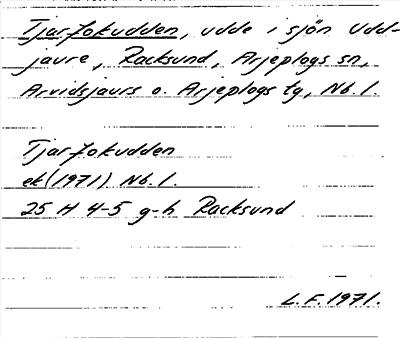 Tjarfokudden, udde i sjön Udd-
jaure, Racksund, Arjeplogs sn,
Arvidsjaurs o. Arjeplogs tg, Nb. l.
Tjarfokudden
ek (1971) Nb. l.
25 H 4-5 g-h Racksund
L.F. 1971.